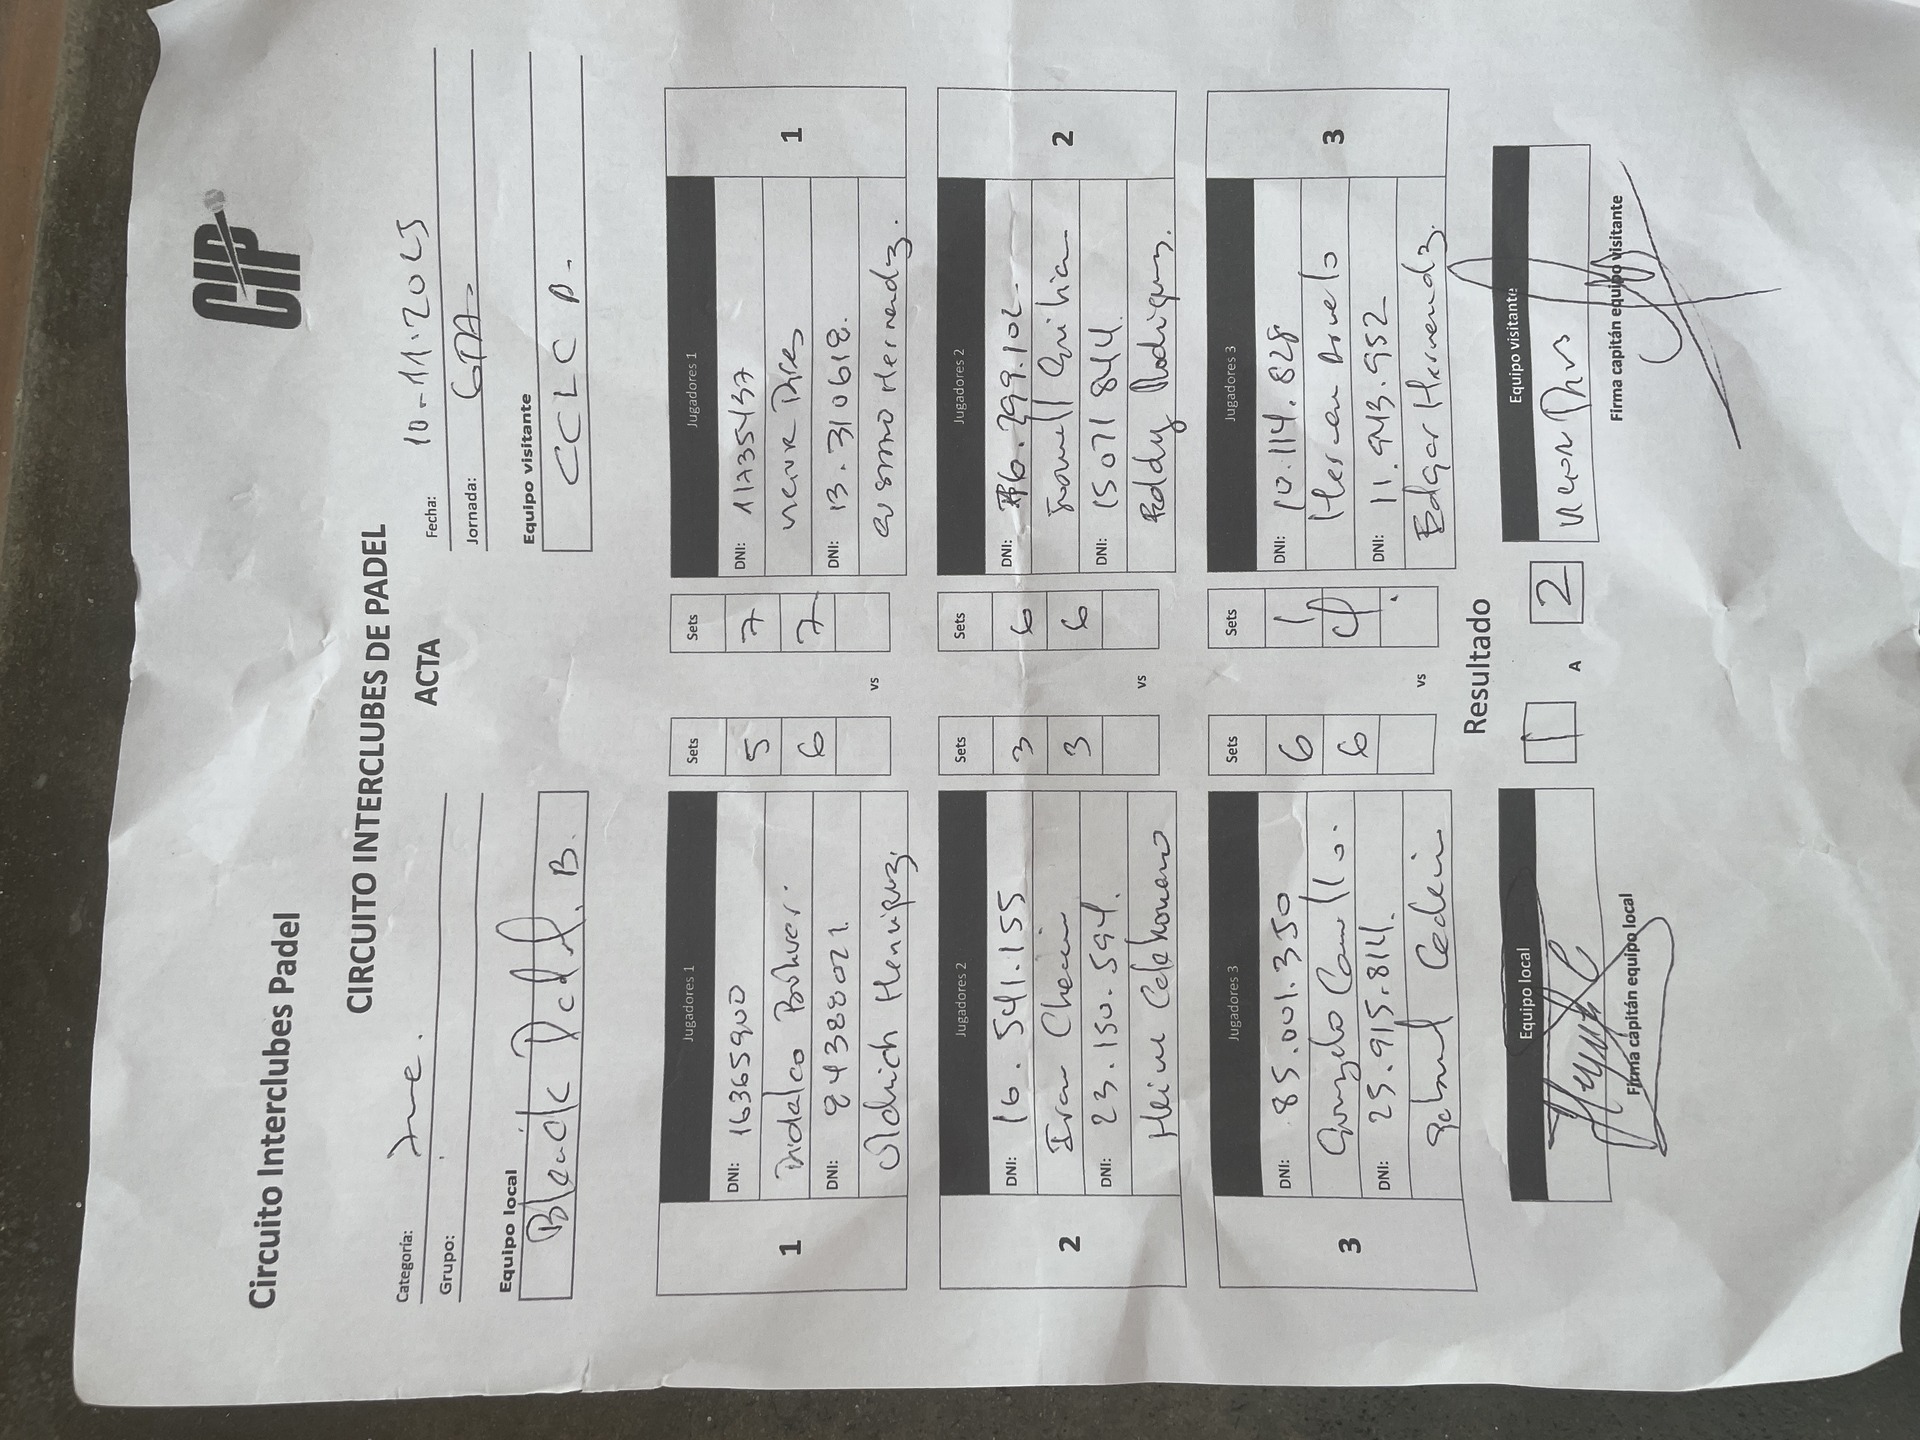 Circuito Interclubes Padel
CIP
CIRCUITO INTERCLUBES DE PADEL
ACTA
Categoría:
Fecha: 10-11-2025
Grupo:
Jornada: 6TA.
Equipo local
Equipo visitante
Padel. B.
CCLC B.
1
Jugadores 1
DNI: 16365900
Bolivar.
DNI: 84388021
Oldrich Henriquez.
Sets
5
6
vs
Sets
7
7
Jugadores 1
DNI: 11735437
DNI: 13.310618.
Hernandez.
1
2
Jugadores 2
DNI: 16.541.155
Ivan
DNI: 23.150.594.
Sets
3
3
vs
Sets
6
6
Jugadores 2
DNI: 6.299.102
DNI: 15071844
Rodriguez.
2
3
Jugadores 3
DNI: 85.001.350
Gonzalo
DNI: 25.915.814.
Gabriel Cedeño
Sets
6
6
vs
Sets
1
4
Jugadores 3
DNI: 10.114.828
DNI: 11.943.952
Edgar Hernandez.
3
Resultado
Equipo local
1
A
2
Equipo visitante
Firma capitán equipo local
Firma capitán equipo visitante